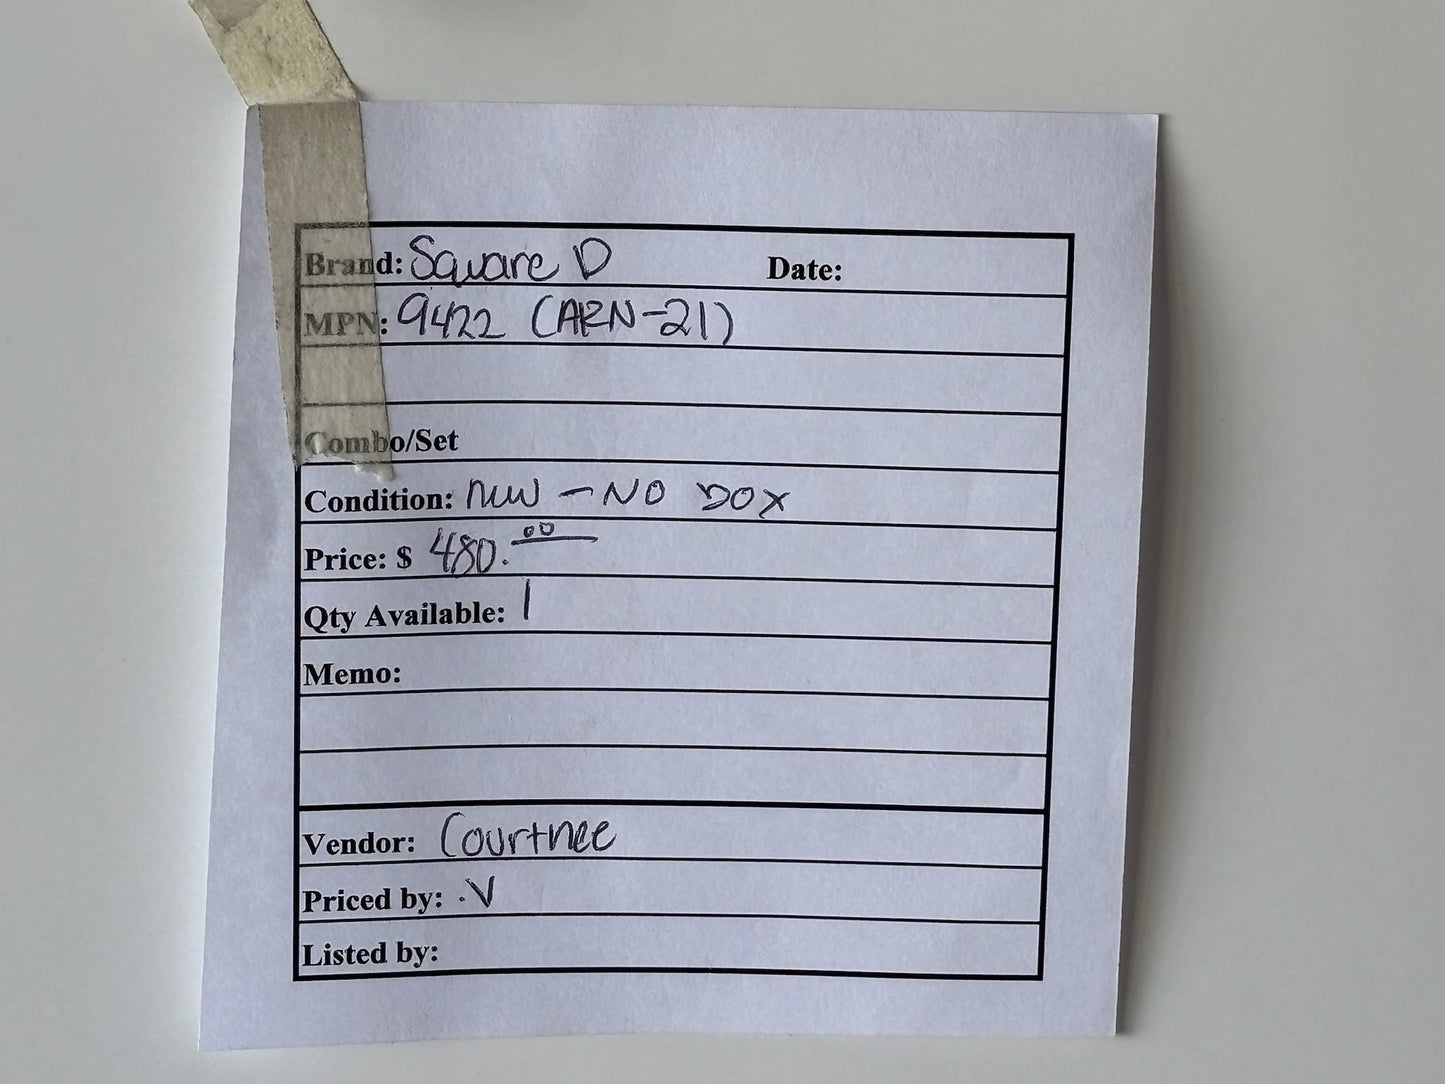 Brand: Square D Date:
MPN: 9422 (ARN-21)
Combo/Set
Condition: New - NO BOX
Price: $ 480.00
Qty Available: 1
Memo:
Vendor: Courtnee
Priced by: .V
Listed by: